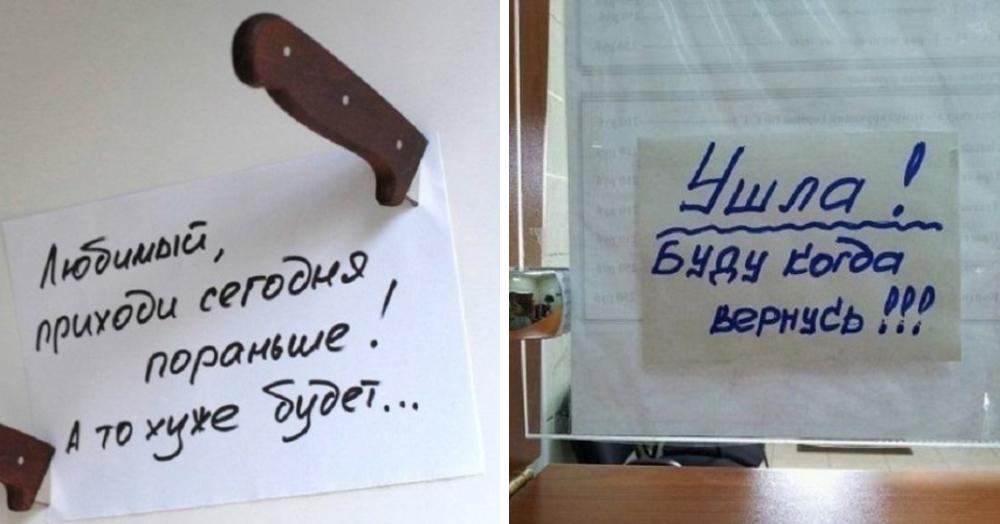 Любимый,
приходи сегодня
пораньше!
А то хуже будет...
Ушла!
Буду когда
вернусь!!!